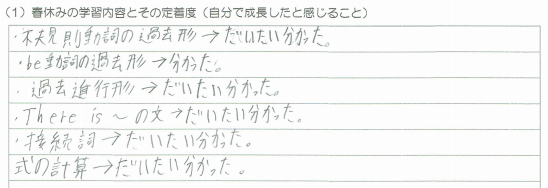 （1）春休みの学習内容とその定着度（自分で成長したと感じること）
・不規則動詞の過去形→だいたい分かった。
・be動詞の過去形→分かった。
・過去進行形→だいたい分かった。
・There is ～の文→だいたい分かった。
・接続詞→だいたい分かった。
式の計算→だいたい分かった。